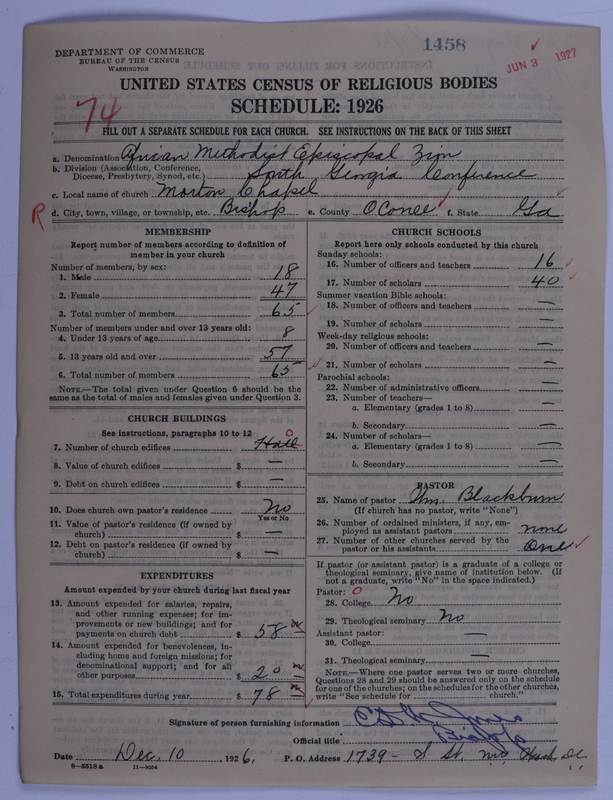 1458
JUN 3 1927
DEPARTMENT OF COMMERCE
BUREAU OF THE CENSUS
WASHINGTON
UNITED STATES CENSUS OF RELIGIOUS BODIES
SCHEDULE: 1926
74
FILL OUT A SEPARATE SCHEDULE FOR EACH CHURCH. SEE INSTRUCTIONS ON THE BACK OF THIS SHEET
a. Denomination African Methodist Episcopal Zion
b. Division (Association, Conference, Diocese, Presbytery, Synod, etc.) South Georgia Conference
c. Local name of church Morton Chapel
R d. City, town, village, or township, etc. Bishop e. County OConee f. State Ga
MEMBERSHIP
Report number of members according to definition of
member in your church
Number of members, by sex:
1. Male 18
2. Female 47
3. Total number of members 65
Number of members under and over 13 years old:
4. Under 13 years of age 8
5. 13 years old and over 57
6. Total number of members 65
NOTE.—The total given under Question 6 should be
same as the total of males and females given under Question 3.
CHURCH BUILDINGS
See instructions, paragraphs 10 to 12
7. Number of church edifices Hall 0
8. Value of church edifices $ —
9. Debt on church edifices $ —
10. Does church own pastor's residence No
Yes or No
11. Value of pastor's residence (if owned by
church) $ —
12. Debt on pastor's residence (if owned by
church) $ —
EXPENDITURES
Amount expended by your church during last fiscal year
13. Amount expended for salaries, repairs,
and other running expenses; for im-
provements or new buildings; and for
payments on church debt $ 58
14. Amount expended for benevolences, in-
cluding home and foreign missions; for
denominational support; and for all
other purposes $ 20
15. Total expenditures during year $ 78
CHURCH SCHOOLS
Report here only schools conducted by this church
Sunday schools:
16. Number of officers and teachers 16
17. Number of scholars 40
Summer vacation Bible schools:
18. Number of officers and teachers —
19. Number of scholars —
Week-day religious schools:
20. Number of officers and teachers —
21. Number of scholars —
Parochial schools:
22. Number of administrative officers —
23. Number of teachers—
a. Elementary (grades 1 to 8) —
b. Secondary —
24. Number of scholars—
a. Elementary (grades 1 to 8) —
b. Secondary —
PASTOR
25. Name of pastor Wm. Blackburn
(If church has no pastor, write "None")
26. Number of ordained ministers, if any, em-
ployed as assistant pastors none
27. Number of other churches served by the
pastor or his assistants One
If pastor (or assistant pastor) is a graduate of a college or
theological seminary, give name of institution below. (If
not a graduate, write "No" in the space indicated.)
Pastor: 0
28. College No
29. Theological seminary No
Assistant pastor:
30. College —
31. Theological seminary —
NOTE.—Where one pastor serves two or more churches,
Questions 28 and 29 should be answered only on the schedule
for one of the churches; on the schedules for the other churches,
write "See schedule for church."
Signature of person furnishing information
Official title Bishop
Date Dec. 10, 1926. P. O. Address 1739 - S St. NW Wash DC
8—5518a 11—9054